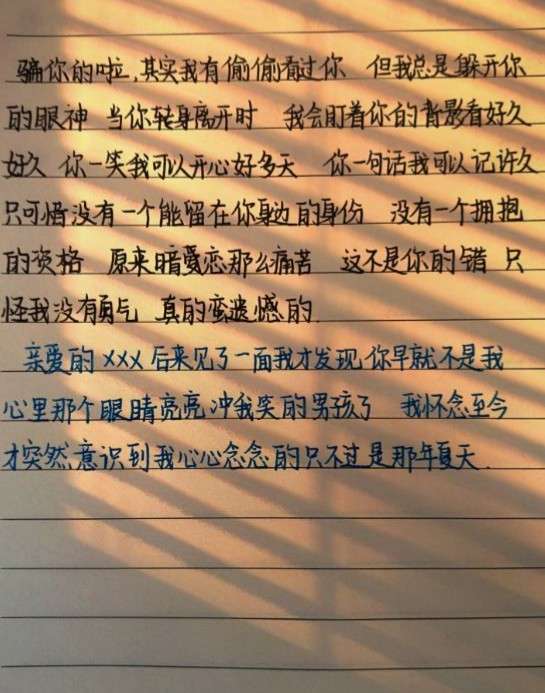 骗你的啦,其实我有偷偷看过你 但我总是躲开你
的眼神 当你转身离开时 我会盯着你的背影看好久
好久 你一笑我可以开心好多天 你一句话我可以记许久
只可惜没有一个能留在你身边的身份 没有一个拥抱
的资格 原来暗恋那么痛苦 这不是你的错 只
怪我没有勇气 真的蛮遗憾的.
亲爱的 xxx 后来见了一面我才发现,你早就不是我
心里那个眼睛亮亮冲我笑的男孩了 我怀念至今
才突然意识到我心心念念的只不过是那年夏天.